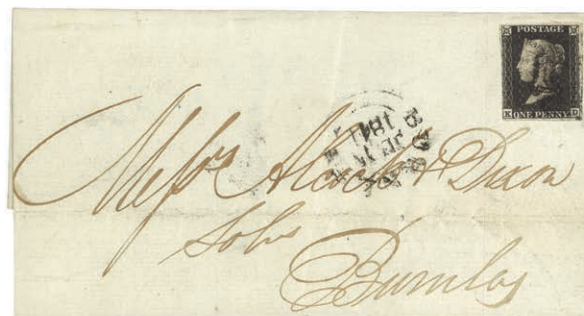 POSTAGE
K D
ONE PENNY
1841
Messrs Alcock & Dixon
Solrs
Burnley